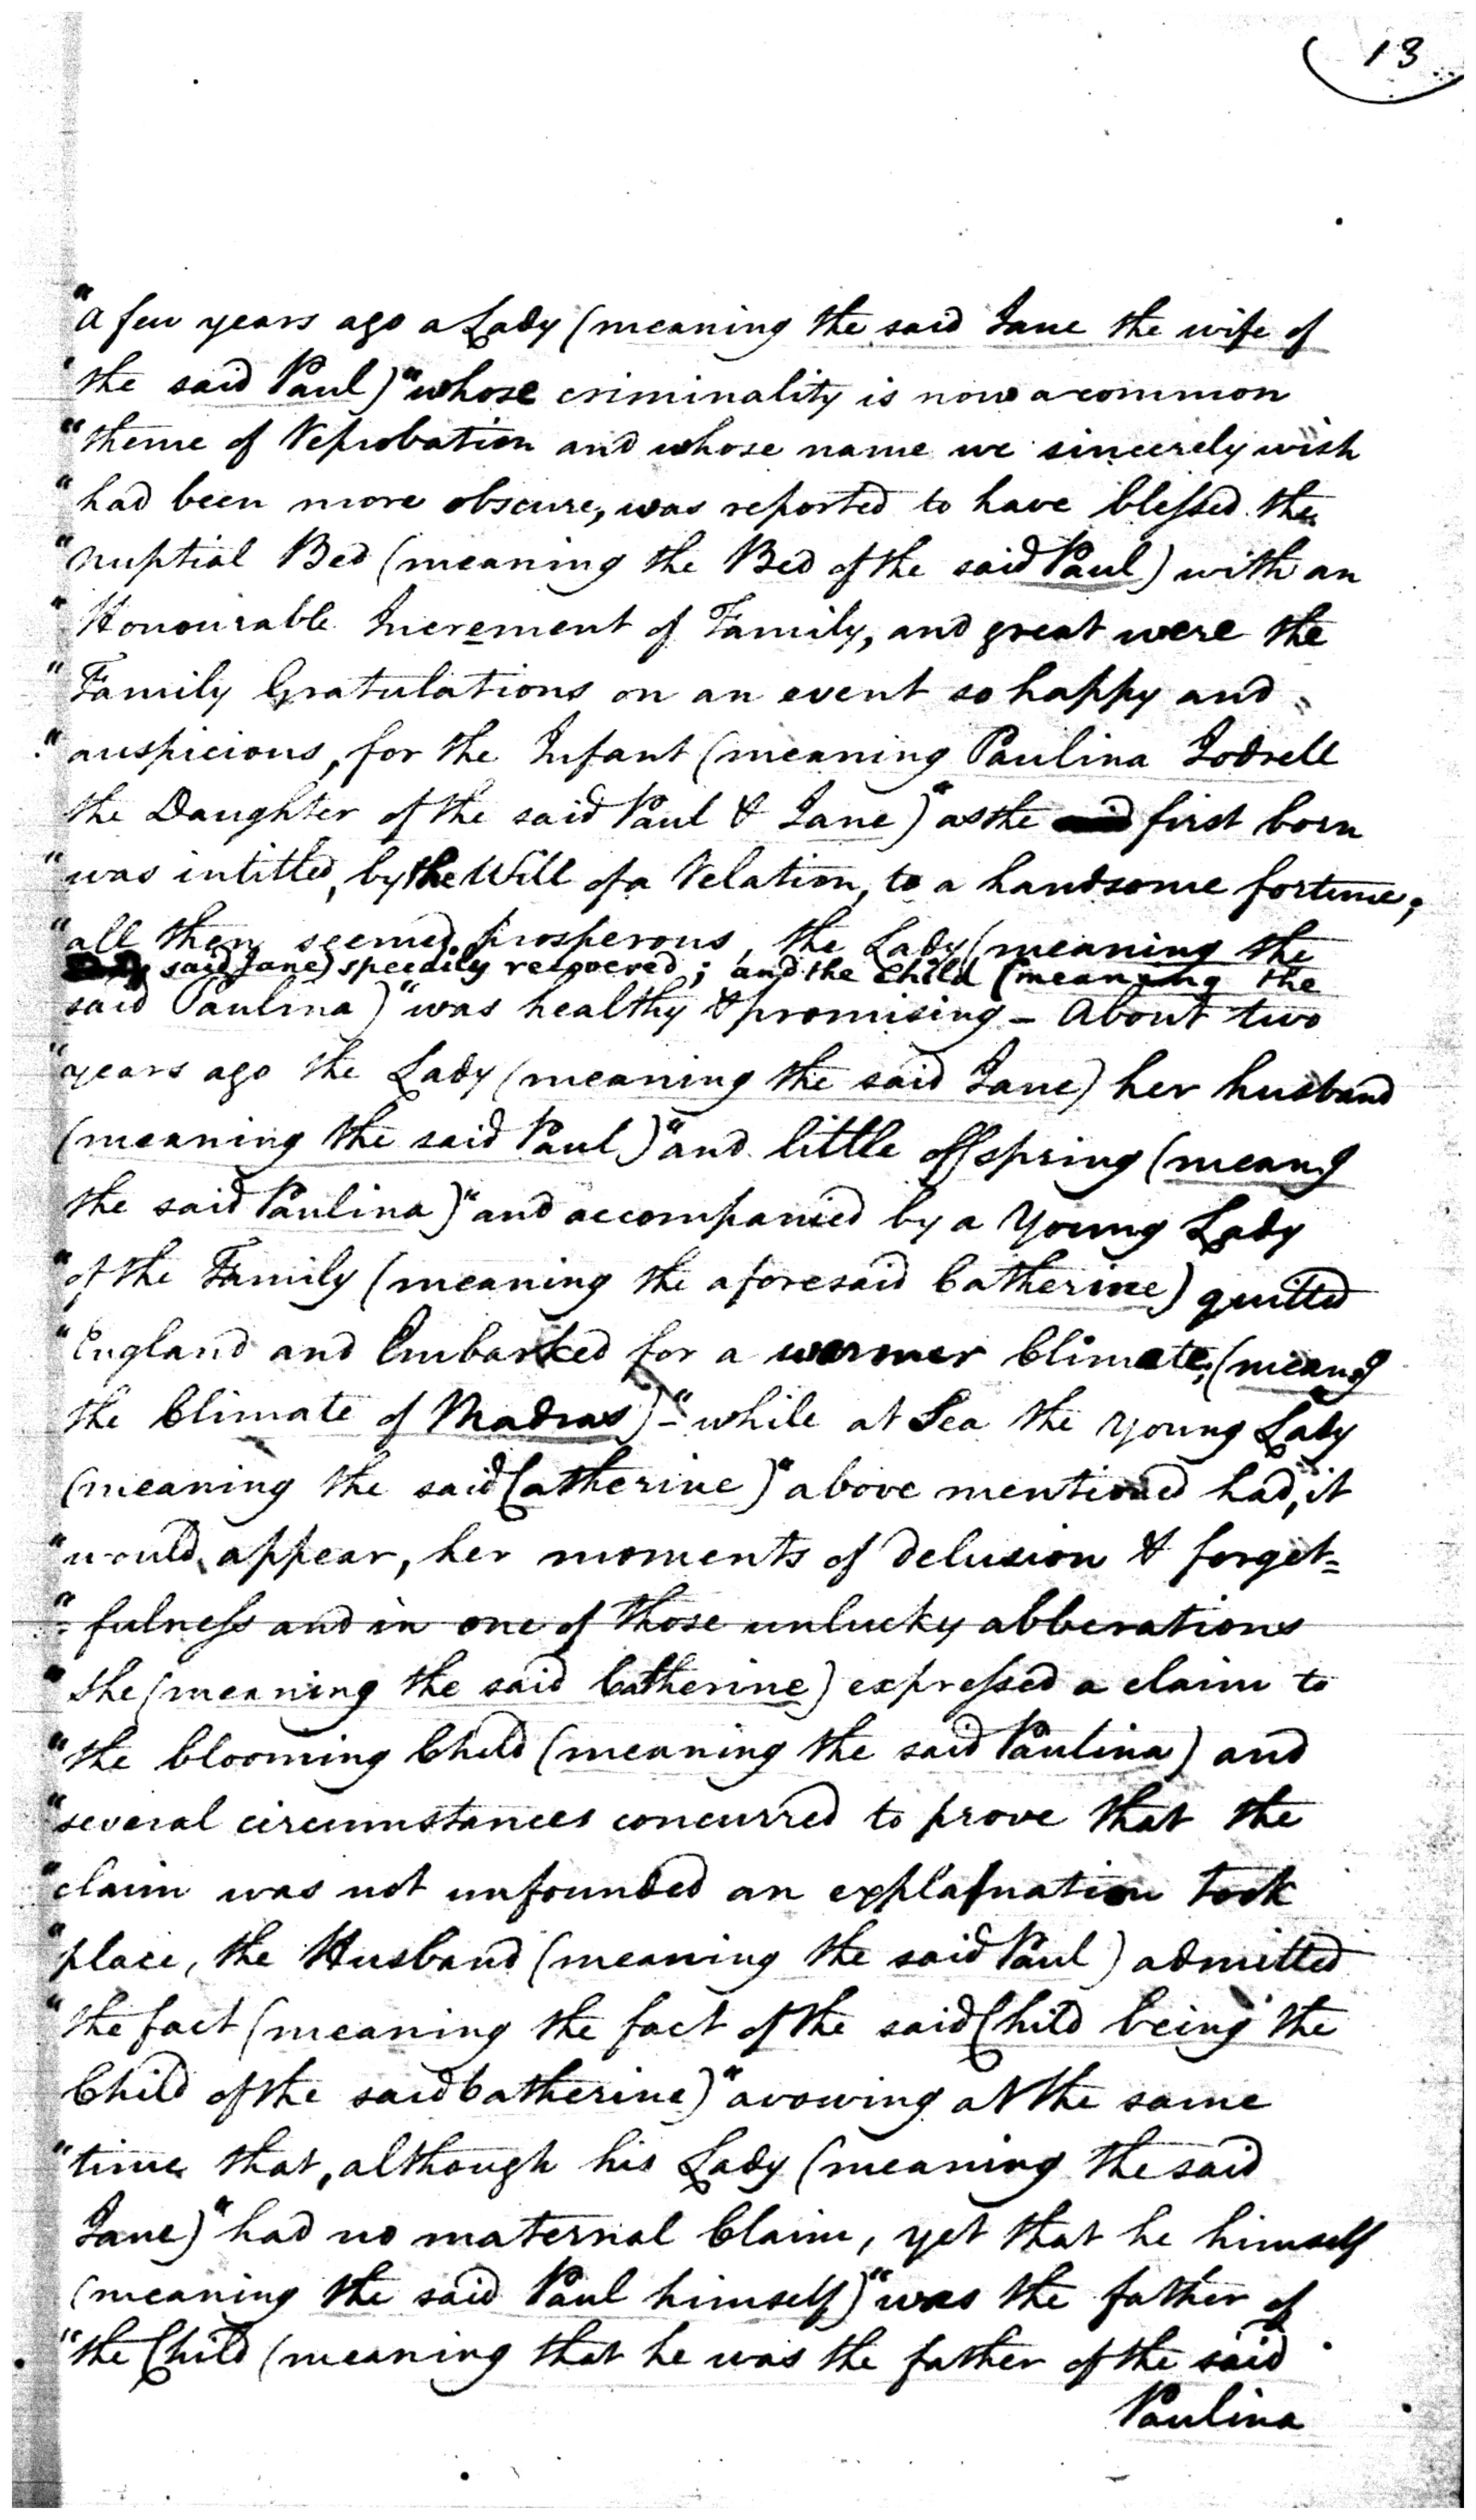 13
"a few years ago a Lady (meaning the said Jane the wife of
the said Paul) "whose criminality is now a common
"theme of Reprobation and whose name we sincerely wish
"had been more obscure, was reported to have blessed the
"nuptial Bed (meaning the Bed of the said Paul) with an
"Honourable Increment of Family, and great were the
"Family Gratulations on an event so happy and
"auspicious, for the Infant (meaning Paulina Jodrell
the Daughter of the said Paul & Jane) "as the first born
"was intitled, by the Will of a Relation, to a handsome fortune;
"all then seemed prosperous, the Lady (meaning the
said Jane) speedily recovered; and the Child (meaning the
said Paulina) "was healthy & promising - About two
"years ago the Lady (meaning the said Jane) her husband
(meaning the said Paul) "and little offspring (meang
the said Paulina) "and accompanied by a Young Lady
"of the Family (meaning the aforesaid Catherine) quitted
"England and Embarked for a warmer Climate, (meang
the Climate of Madras) - "while at Sea the Young Lady
(meaning the said Catherine) "above mentioned had, it
"would appear, her moments of delusion & forget=
"fulness and in one of those unlucky abberations
"she (meaning the said Catherine) expressed a claim to
"the blooming Child (meaning the said Paulina) and
"several circumstances concurred to prove that the
"claim was not unfounded an explafnation took
"place, the Husband (meaning the said Paul) admitted
"the fact (meaning the fact of the said Child being the
Child of the said Catherine) "avowing at the same
"time that, although his Lady (meaning the said
Jane) "had no maternal Claim, yet that he himself
(meaning the said Paul himself) "was the father of
"the Child (meaning that he was the father of the said
Paulina